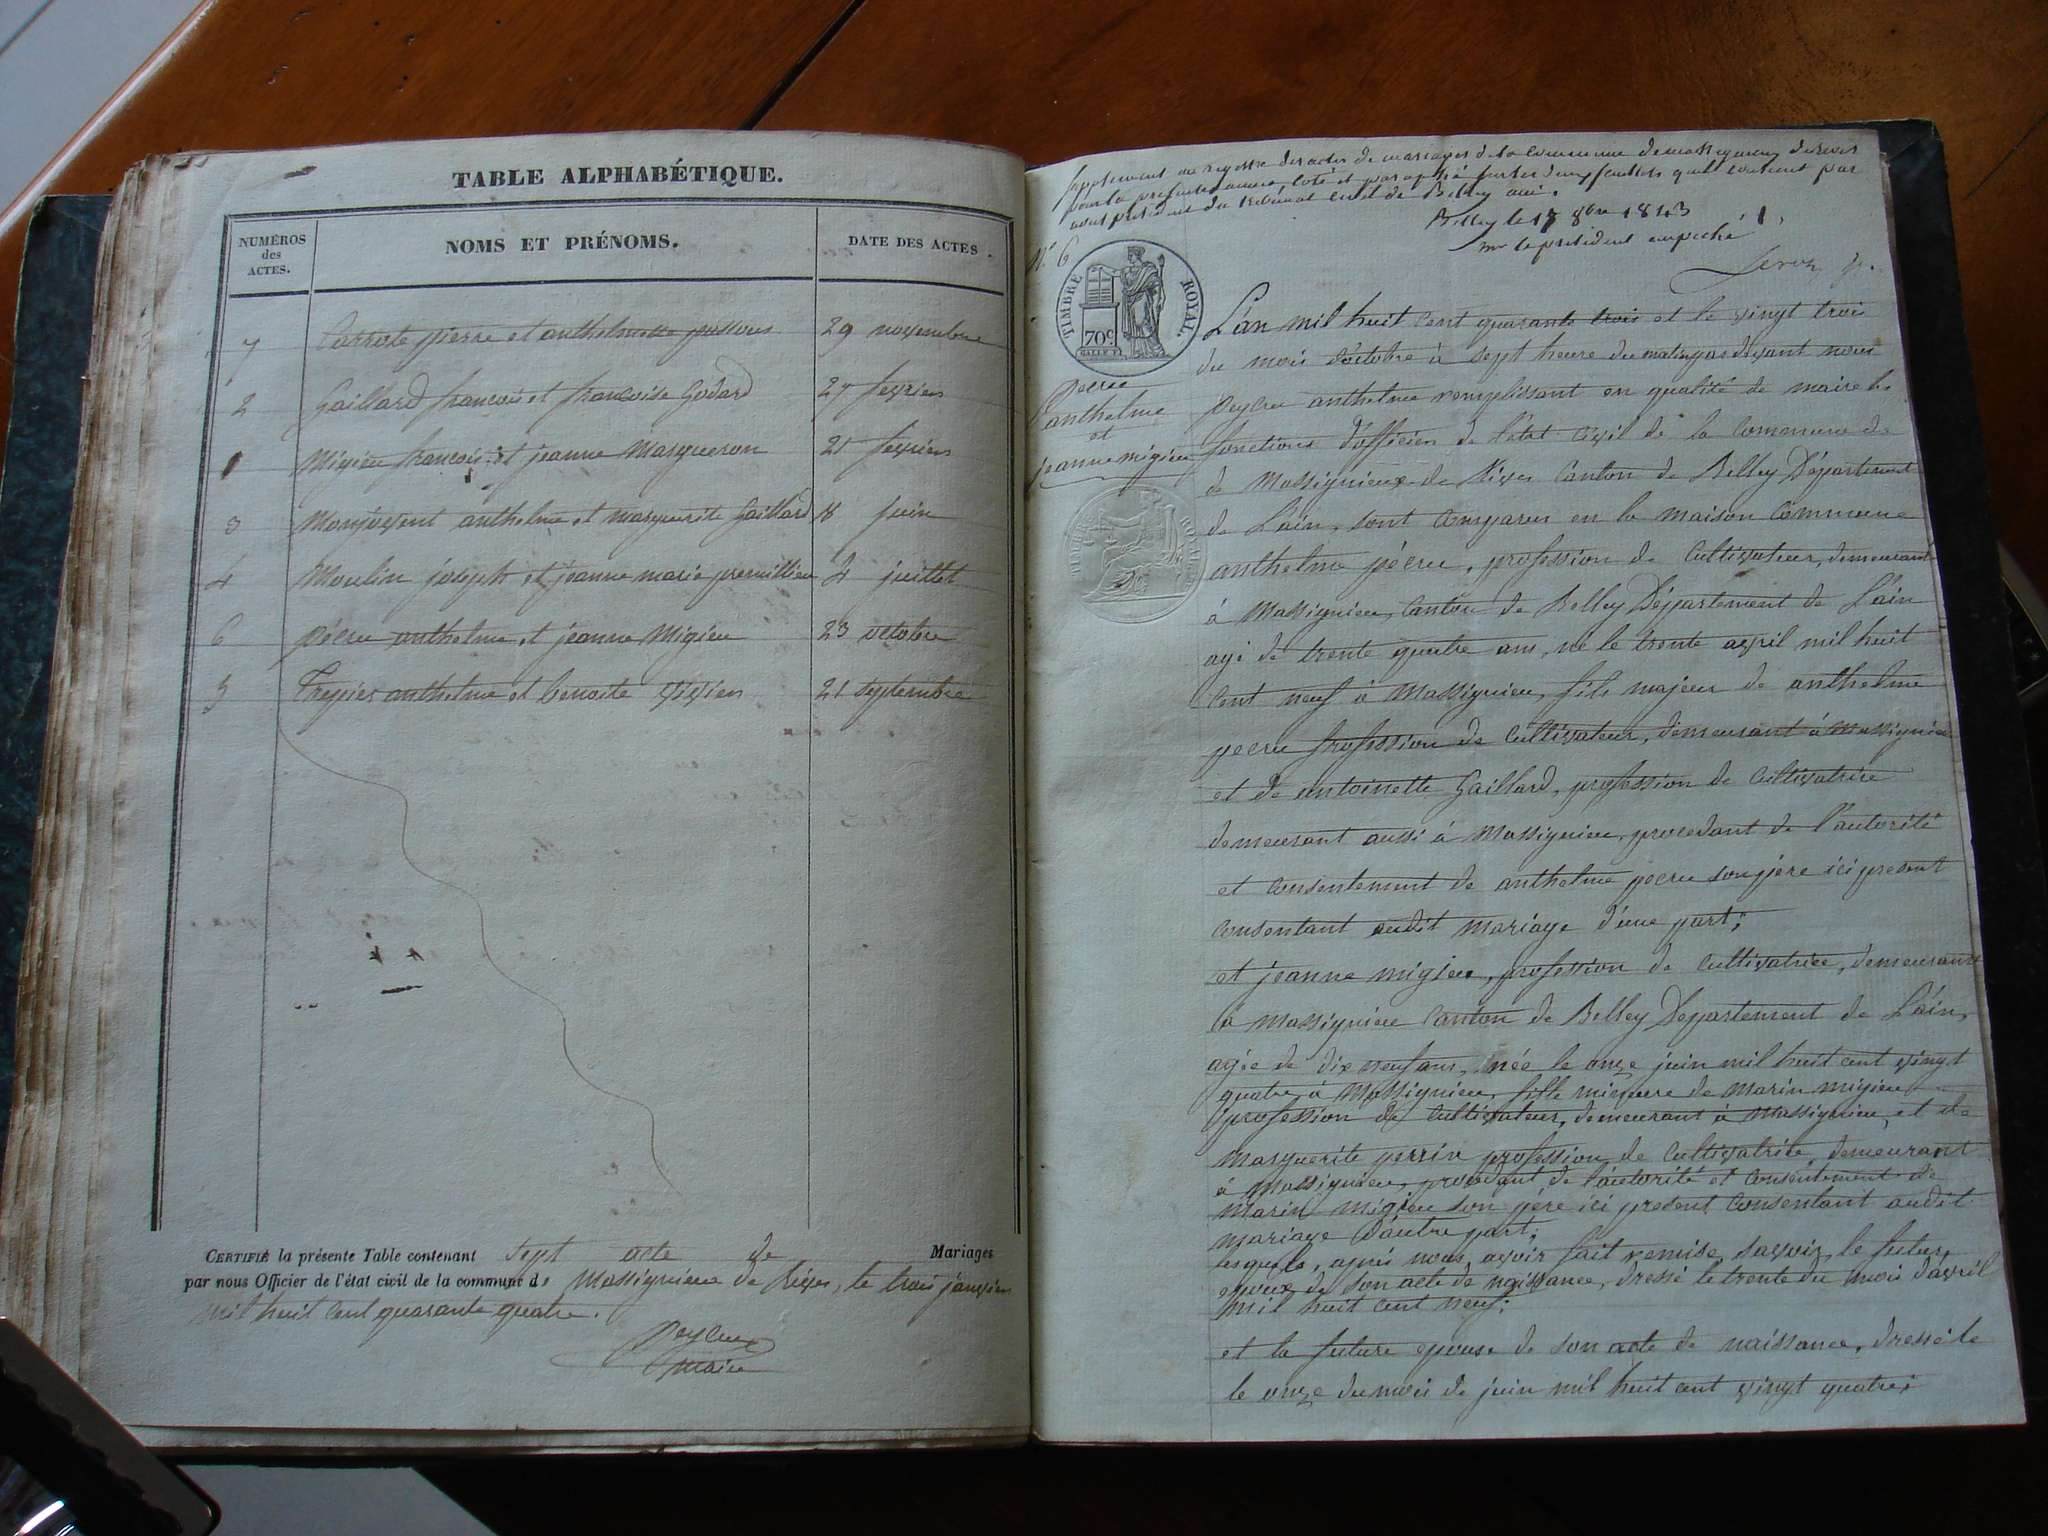 TABLE ALPHABÉTIQUE.
NUMÉROS des ACTES. NOMS ET PRÉNOMS. DATE DES ACTES.
7 pierre et anthelmette 29 novembre
2 Gaillard françois et françoise Godard 27 fevrier
1 Migieu françois et jeanne Masqueron 21 fevrier
3 Monjoyent anthelme et marguerite Gaillard 18 juin
4 Moulin joseph et jeanne marie 4 juillet
6 pécru anthelme et jeanne Migieu 23 octobre
5 anthelme et benoite vivien 21 septembre
CERTIFIÉ la présente Table contenant sept acte de Mariages
par nous Officier de l'état civil de la commune de Massignieux de Rives, le trois janvier
mil huit cent quarante quatre.
maire
supplement au registre des actes de mariages de la commune de massignieux de rives
pour la presente année, coté et paraphé deux feuillets qu'il contient par
nous président du tribunal civil de Belley ain.
Belley le 17 8bre 1843
mr le président empeché 1
N° 6
TIMBRE ROYAL.
70c
pecru
anthelme
et
jeanne migieu
L'an mil huit cent quarante trois et le vingt trois
du mois d'octobre à sept heure du matin par devant nous
peycru anthelme remplissant en qualité de maire les
fonctions d'officier de l'état civil de la commune de
de Massignieux de Rives Canton de Belley Département
de L'ain, sont comparus en la maison Commune
anthelme pécru, profession de Cultivateur, demeurant
à Massignieu, Canton de Belley Département de L'ain
agé de trente quatre ans, né le trente avril mil huit
cent neuf à Massignieu, fils majeur de anthelme
pecru profession de Cultivateur, demeurant à Massignieu
et de antoinette Gaillard, profession de Cultivatrice
demeurant aussi à Massignieu, procedant de l'autorité
et consentement de anthelme pecru son père ici present
consentant audit mariage d'une part;
et jeanne migieu, profession de Cultivatrice, demeurant
à Massignieu Canton de Belley Département de L'ain,
agée de dix neuf ans, née le onze juin mil huit cent vingt
quatre à Massignieu, fille mineure de marin migieu
profession de Cultivateur, demeurant à Massignieu, et de
marguerite perrin profession de Cultivatrice, demeurant
à Massignieu, procedant de l'autorité et consentement de
marin migieu son père ici present consentant audit
mariage d'autre part;
lesquels, après nous avoir fait remise, savoir, le futur
epoux de son acte de naissance, dressé le trente du mois d'avril
mil huit cent neuf;
et la future epouse de son acte de naissance, dressé le
le onze du mois de juin mil huit cent vingt quatre;